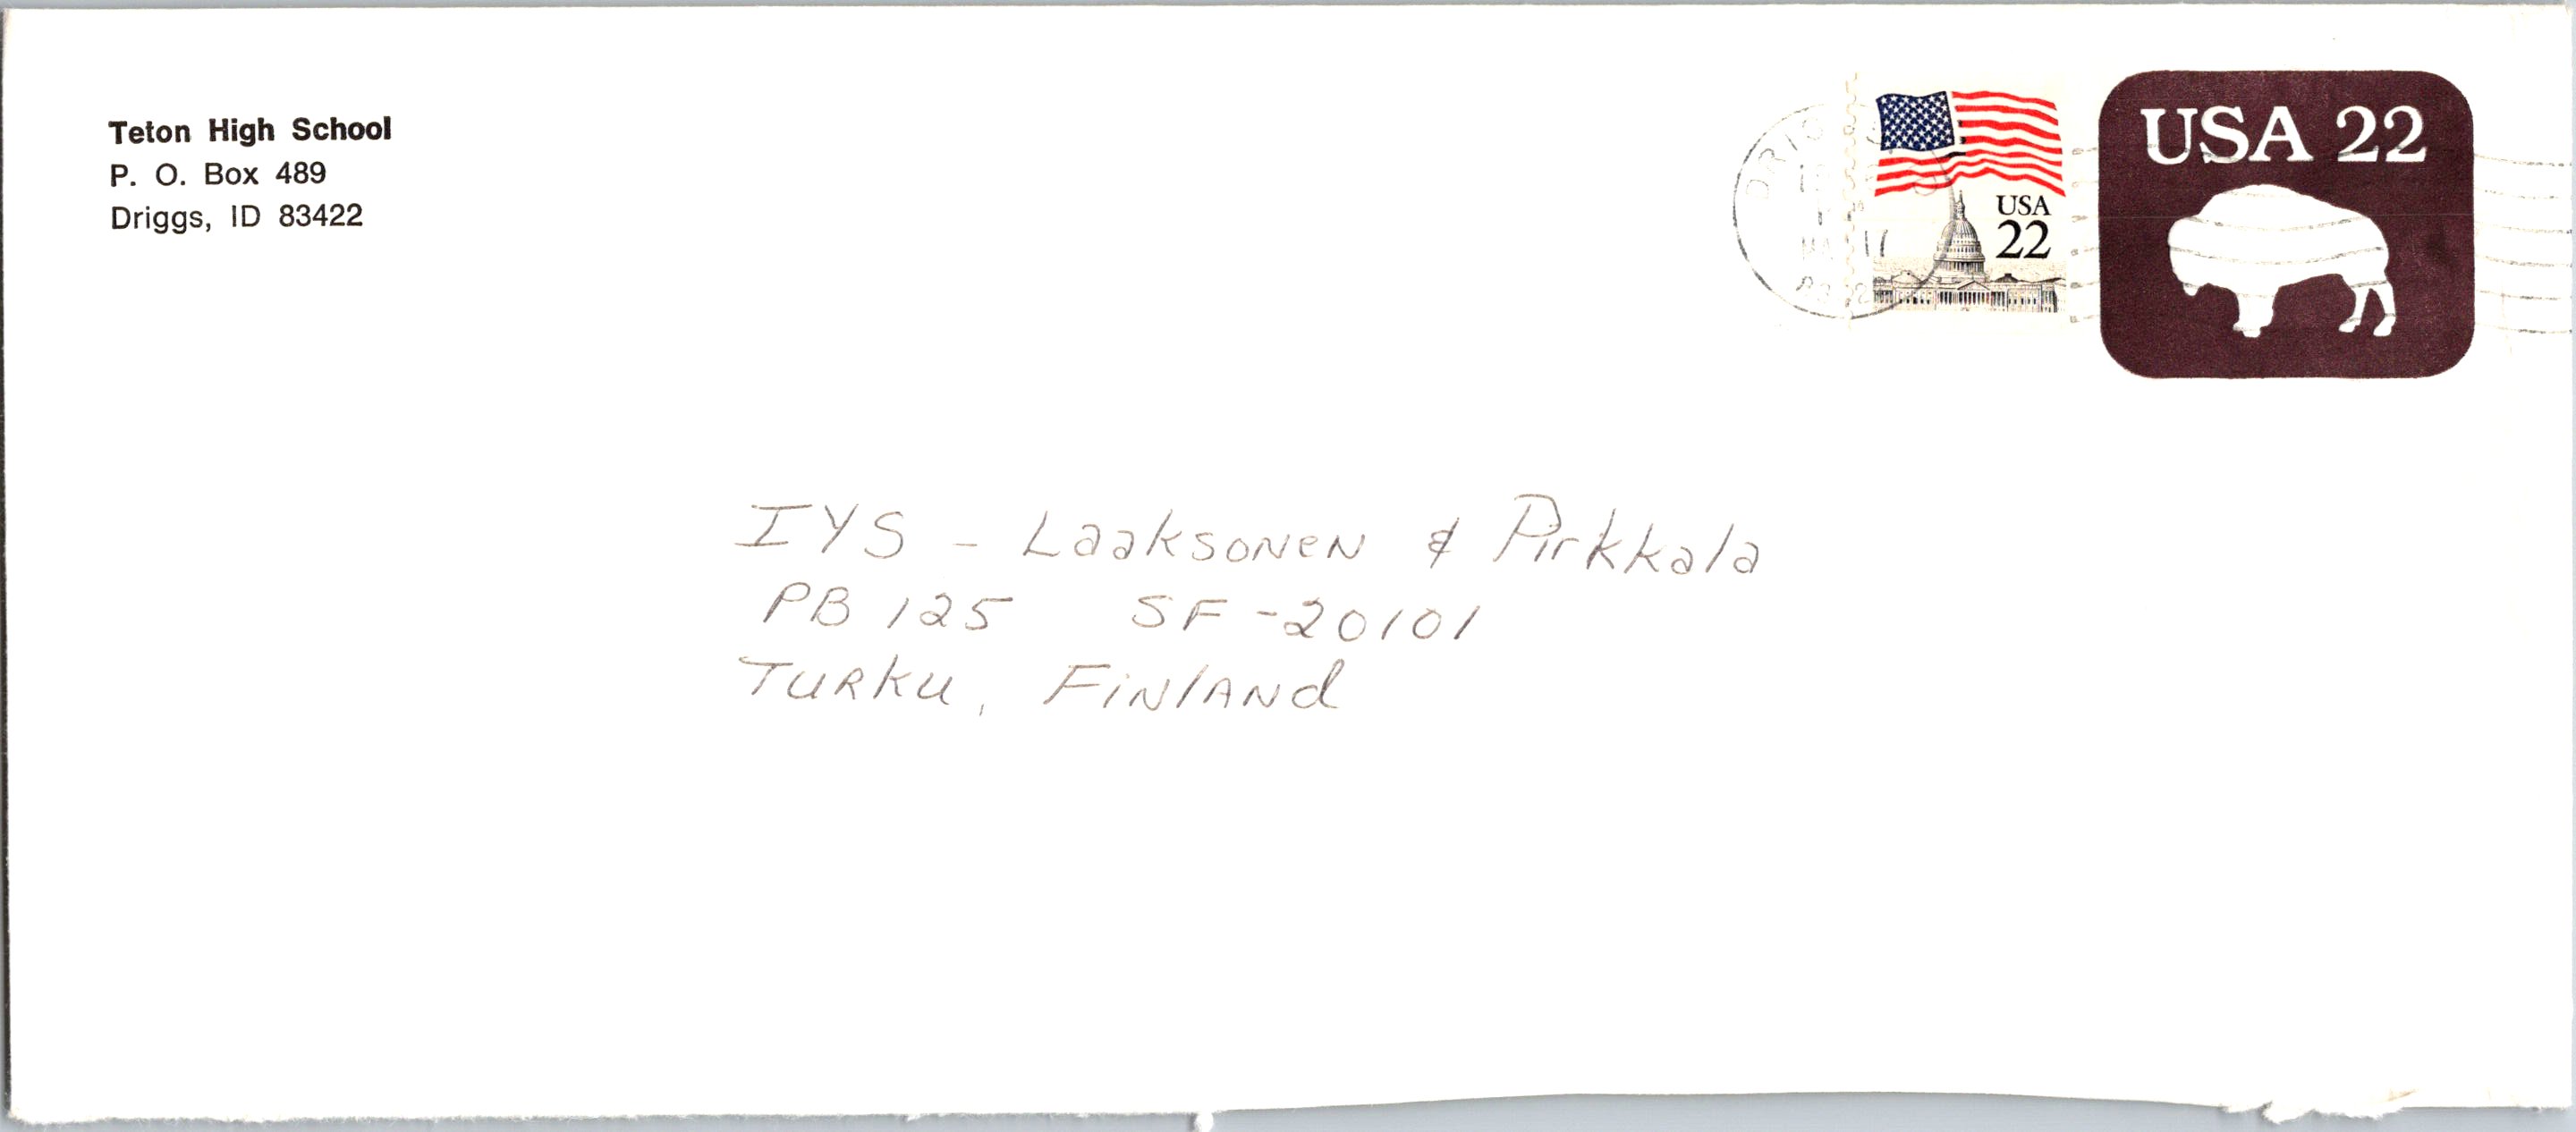 Teton High School
P. O. Box 489
Driggs, ID 83422
USA
22
USA 22
IYS - Laaksonen & Pirkkala
PB 125 SF-20101
Turku, Finland